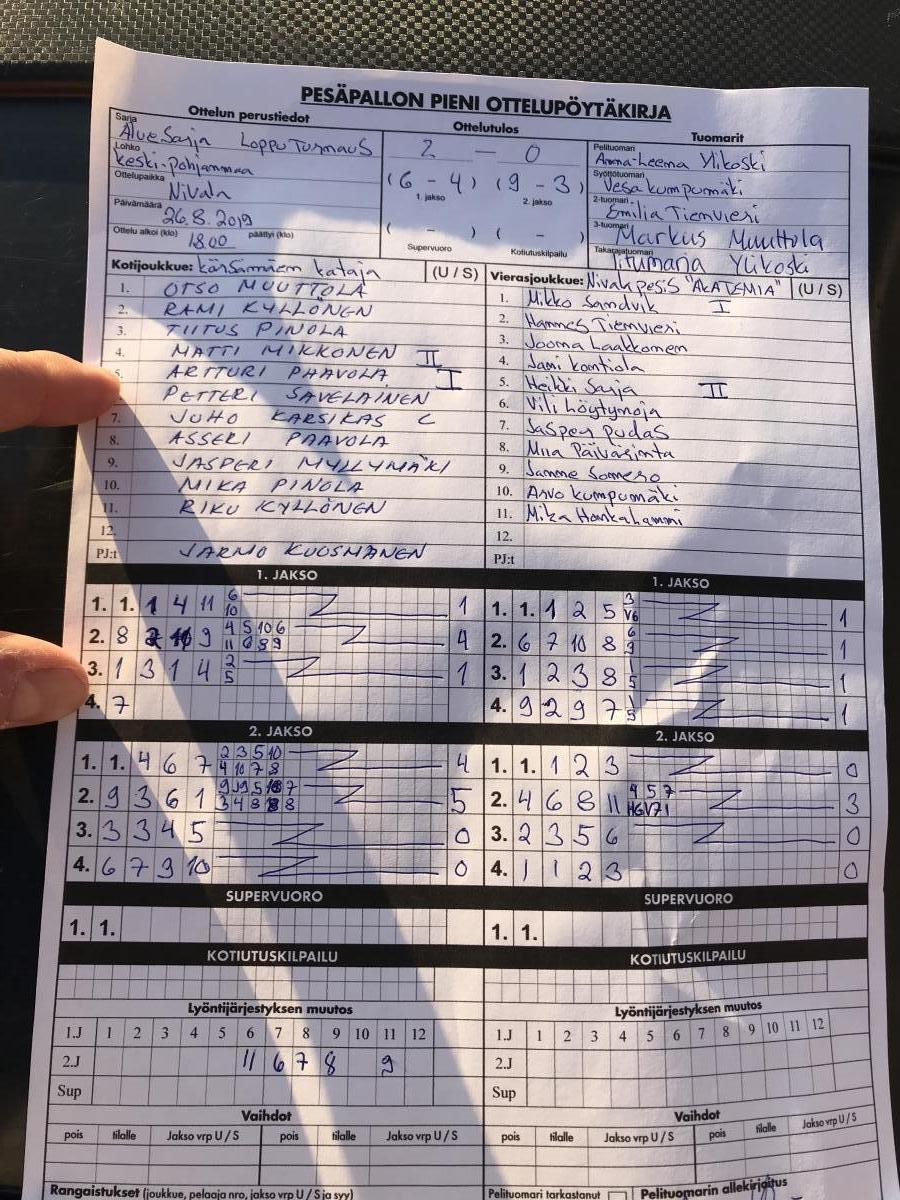 PESÄPALLON PIENI OTTELUPÖYTÄKIRJA
Ottelun perustiedot
Sarja
AlueSarja LoppuTurnaus
Lohko
Keski-Pohjanmaa
Ottelupaikka
Nivala
Päivämäärä
26.8.2019
Ottelu alkoi (klo) 18.00 päättyi (klo)
Ottelutulos
2 — 0
(6 - 4) (9 - 3)
1. jakso 2. jakso
( - ) ( - )
Supervuoro Kotiutuskilpailu
Tuomarit
Pelituomari
Anna-Leena Ylikoski
Syöttötuomari
Vesa Kumpumäki
2-tuomari
Emilia Tiemvieri
3-tuomari
Markus Muuttola
Takarajatuomari
Ylikoski
Kotijoukkue: kärsämäen kataja (U / S)
1. OTSO MUUTTOLA
2. RAMI KYLLÖNEN
3. TIITUS PINOLA
4. MATTI MIKKONEN II
5. ARTTURI PAAVOLA I
PETTERI SAVELAINEN
7. JUHO KARSIKAS C
8. ASSERI PAAVOLA
9. JASPERI MYLLYMÄKI
10. MIKA PINOLA
11. RIKU KYLLÖNEN
12.
PJ:t JARMO KUOSMANEN
Vierasjoukkue: Nivala pesis "AKATEMIA" (U / S)
1. Mikko Sandvik I
2. Hannes Tiemvieri
3. Joona Laakkonen
4. Jani kontiola
5. Heikki Sarja II
6. Vili Löytynoja
7. Jasper pudas
8. Miia Päivärinta
9. Janne Somero
10. Arvo kumpumäki
11. Mika Honkahammi
12.
PJ:t
1. JAKSO
1. 1. 1 4 11 6 10 1
2. 8 9 4 5 10 6 11 6 8 9 4
3. 1 3 1 4 2 5 1
4. 7
1. JAKSO
1. 1. 1 2 5 3 V6 1
2. 6 7 10 8 6 9 1
3. 1 2 3 8 1 5 1
4. 9 2 9 7 1 5 1
2. JAKSO
1. 1. 4 6 7 2 3 5 10 4 10 7 8 4
2. 9 3 6 1 5
3. 3 3 4 5 0
4. 6 7 9 10 0
2. JAKSO
1. 1. 1 2 3 0
2. 4 6 8 11 4 5 7 3
3. 2 3 5 6 0
4. 1 1 2 3 0
SUPERVUORO
1. 1.
SUPERVUORO
1. 1.
KOTIUTUSKILPAILU
KOTIUTUSKILPAILU
Lyöntijärjestyksen muutos
1.J 1 2 3 4 5 6 7 8 9 10 11 12
2.J 11 6 7 8 9
Sup
Lyöntijärjestyksen muutos
1.J 1 2 3 4 5 6 7 8 9 10 11 12
2.J
Sup
Vaihdot
pois tilalle Jakso vrp U / S pois tilalle Jakso vrp U / S
Vaihdot
pois tilalle Jakso vrp U / S pois tilalle Jakso vrp U / S
Rangaistukset (joukkue, pelaaja nro, jakso vrp U / S ja syy)
Pelituomari tarkastanut
Pelituomarin allekirjoitus